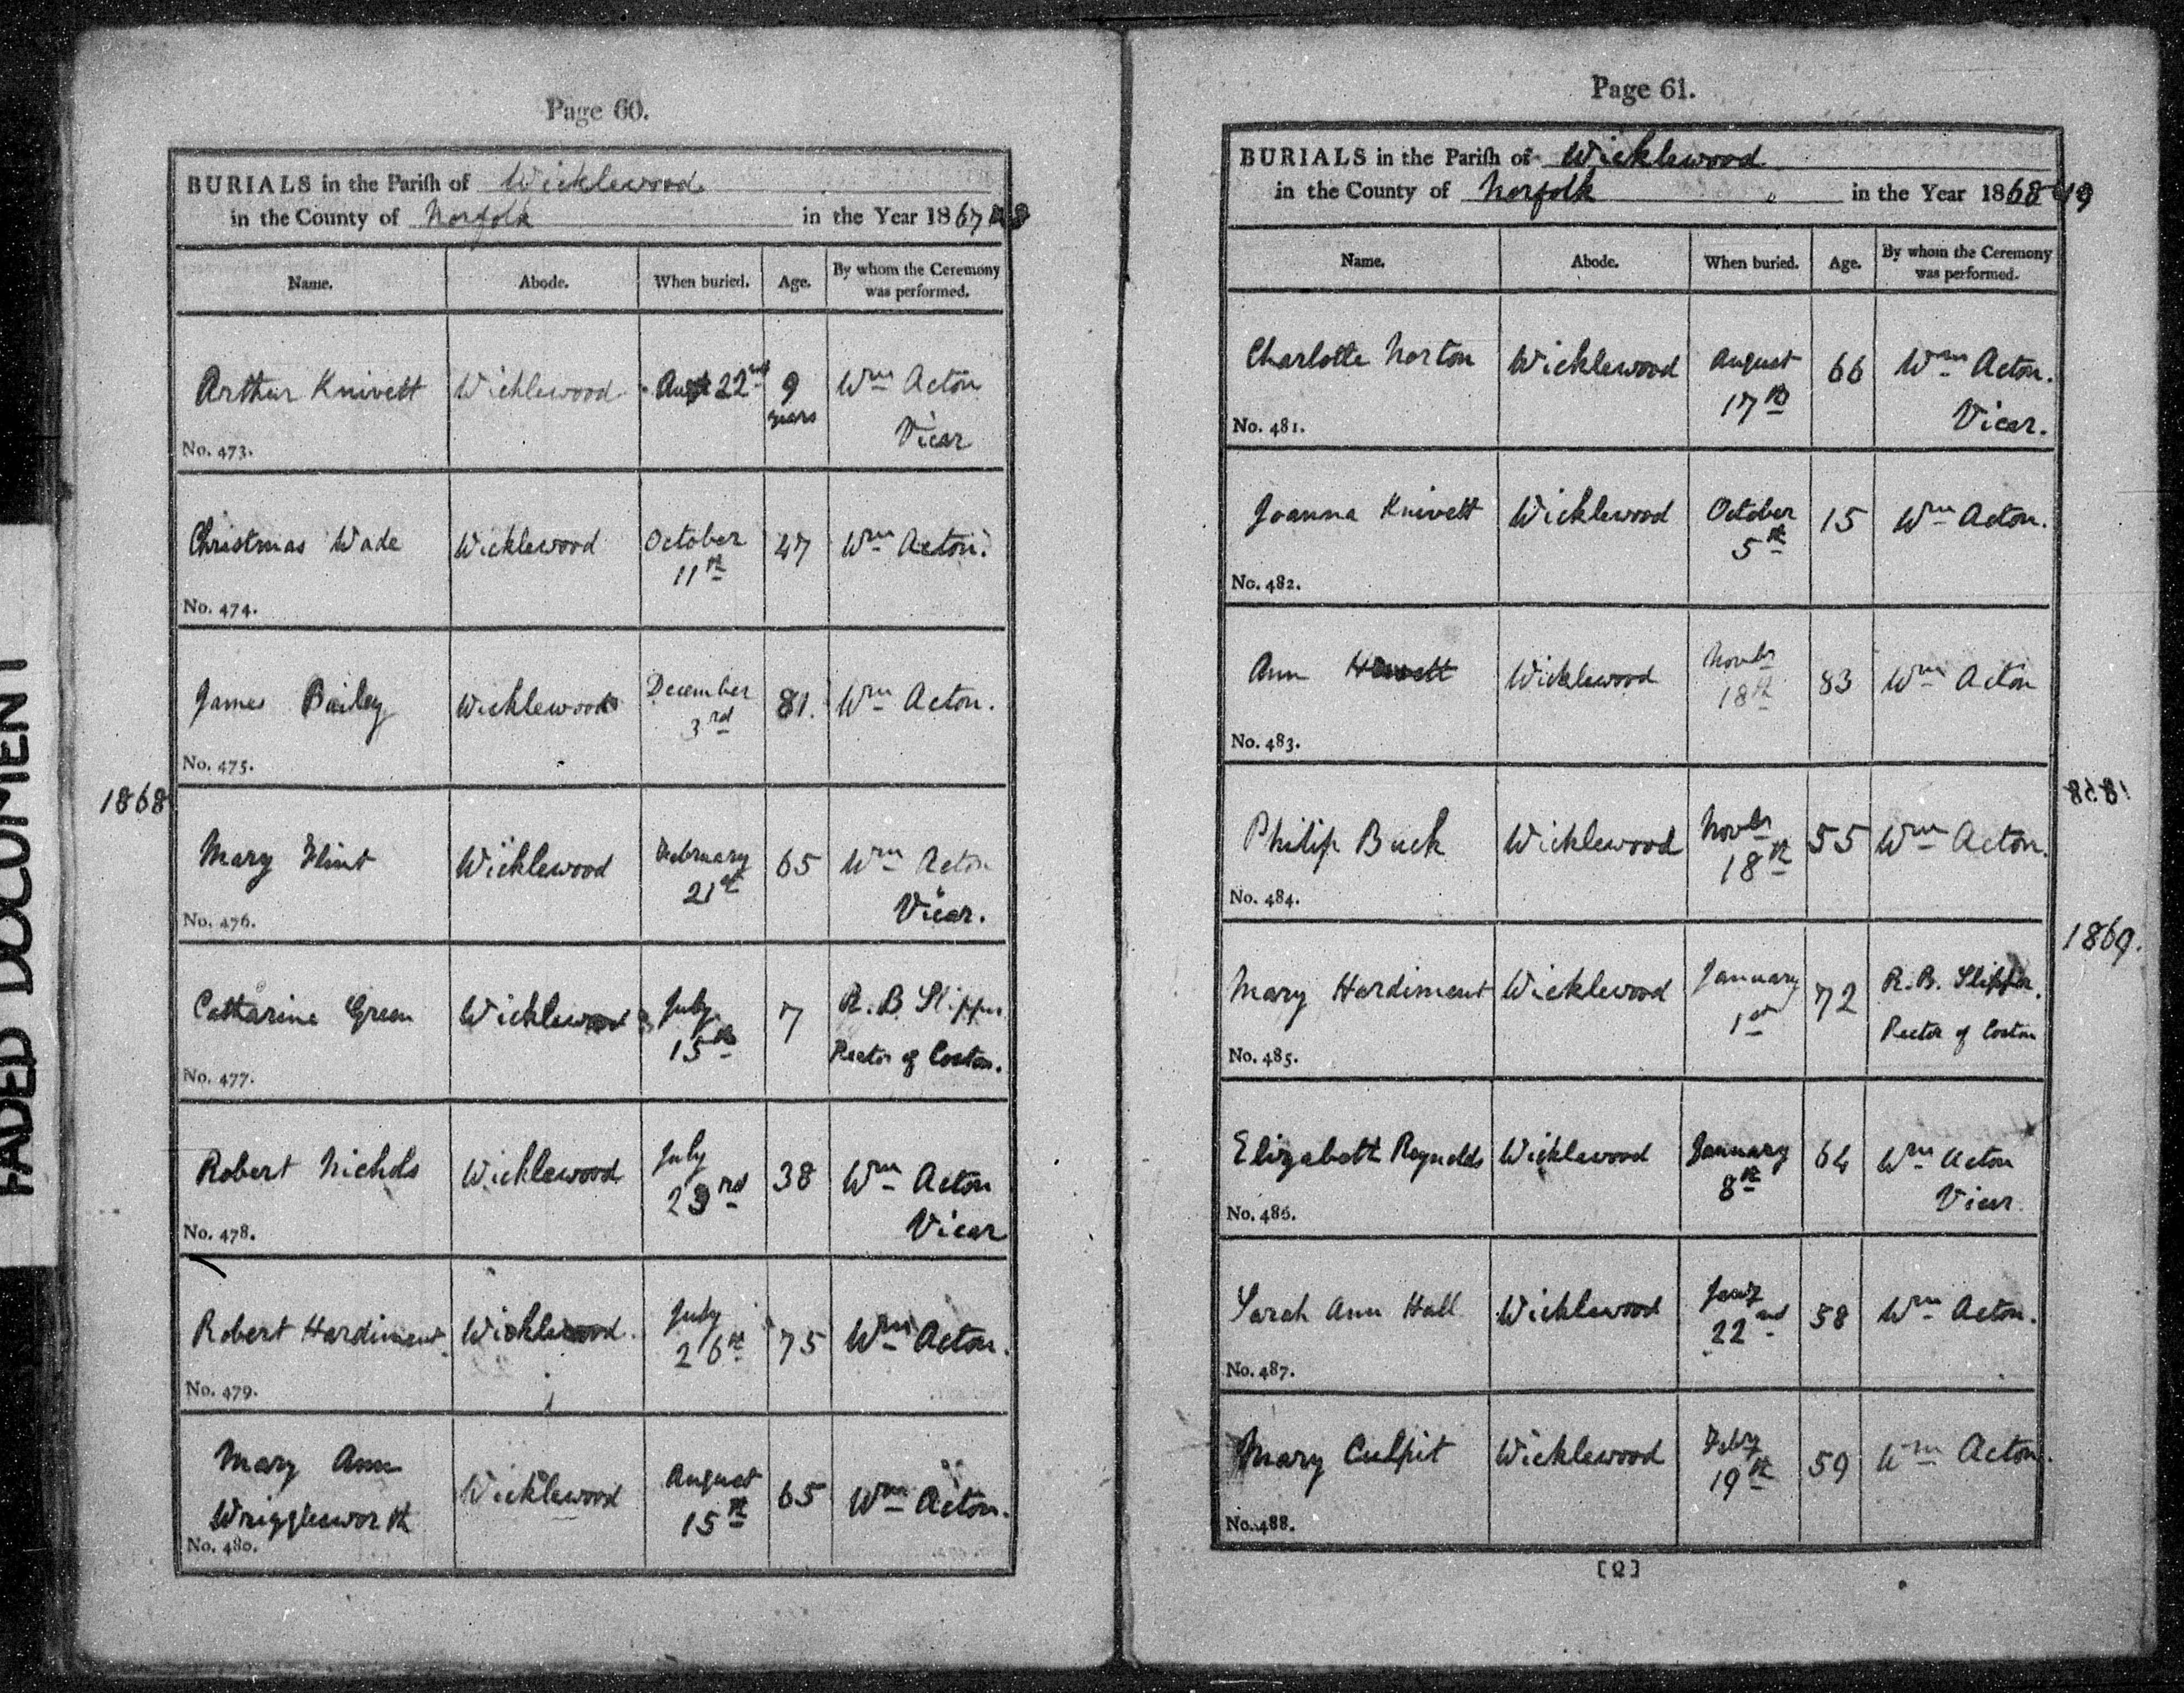 FADED DOCUMENT
Page 60.
BURIALS in the Parish of Wicklewood
in the County of Norfolk in the Year 1867
Name. Abode. When buried. Age. By whom the Ceremony was performed.
Arthur Knivett Wicklewood Augst 22nd 9 years Wm Acton Vicar
No. 473.
Christmas Wade Wicklewood October 11th 47 Wm Acton.
No. 474.
James Bailey Wicklewood December 3rd 81. Wm Acton.
No. 475.
1868
Mary Flint Wicklewood February 21st 65 Wm Acton Vicar.
No. 476.
Catharine Green Wicklewood July 15th 7 R. B. Slipper Rector of Coston.
No. 477.
Robert Nichols Wicklewood July 23rd 38 Wm Acton Vicar
No. 478.
Robert Hardiment Wicklewood. July 26th 75 Wm Acton.
No. 479.
Mary Ann Wrigglesworth Wicklewood August 15th 65 Wm Acton.
No. 480.
Page 61.
BURIALS in the Parish of Wicklewood
in the County of Norfolk in the Year 1868
Name. Abode. When buried. Age. By whom the Ceremony was performed.
Charlotte Norton Wicklewood August 17th 66 Wm Acton. Vicar.
No. 481.
Joanna Knivett Wicklewood October 5th 15 Wm Acton.
No. 482.
Ann Wicklewood Novbr 18th 83 Wm Acton
No. 483.
Philip Buck Wicklewood Novbr 18th 55 Wm Acton.
No. 484.
1869.
Mary Hardiment Wicklewood January 1st 72 R. B. Slipper. Rector of Coston
No. 485.
Elizabeth Reynolds Wicklewood January 8th 64 Wm Acton Vicar.
No. 486.
Sarah Ann Hall Wicklewood Jany 22nd 58 Wm Acton.
No. 487.
Mary Culpit Wicklewood Feby 19th 59 Wm Acton.
No. 488.